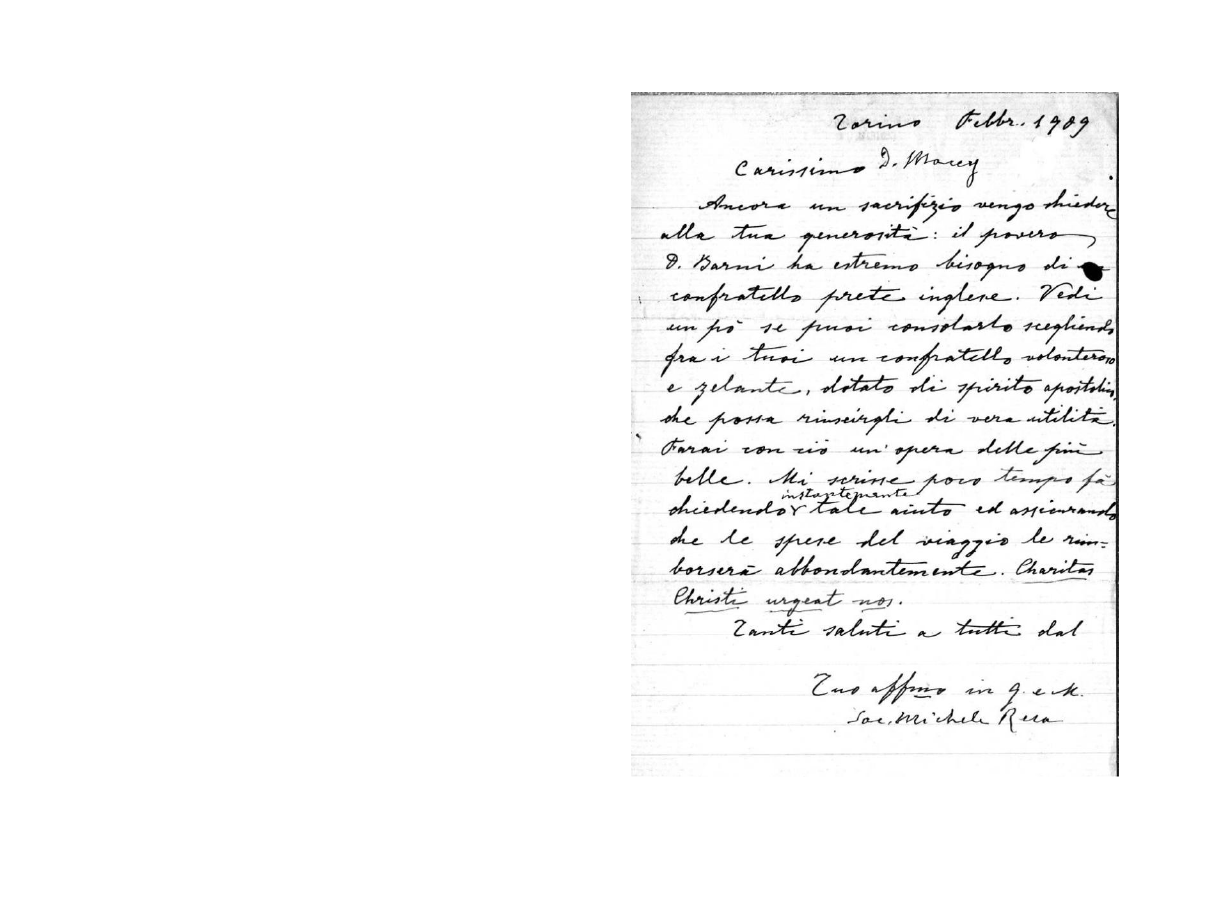 Torino Febbr. 1909
Carissimo D. Macey
Ancora un sacrifizio vengo chiedere
alla tua generosità: il povero
D. Barni ha estremo bisogno di
confratello prete inglese. Vedi
un pò se puoi consolarlo scegliendo
fra i tuoi un confratello volonteroso
e zelante, dotato di spirito apostolico,
che possa riuscirgli di vera utilità.
Farai con ciò un'opera delle più
belle. Mi scrisse poco tempo fà
instantemente
chiedendo tale aiuto ed assicurando
che le spese del viaggio le rim=
borserà abbondantemente. Charitas
Christi urgeat nos.
Tanti saluti a tutti dal
Tuo affmo in G. e M.
Sac. Michele Rua